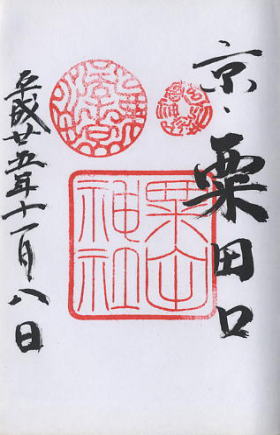 京・粟田口
粟田神社
平成廿五年十一月八日